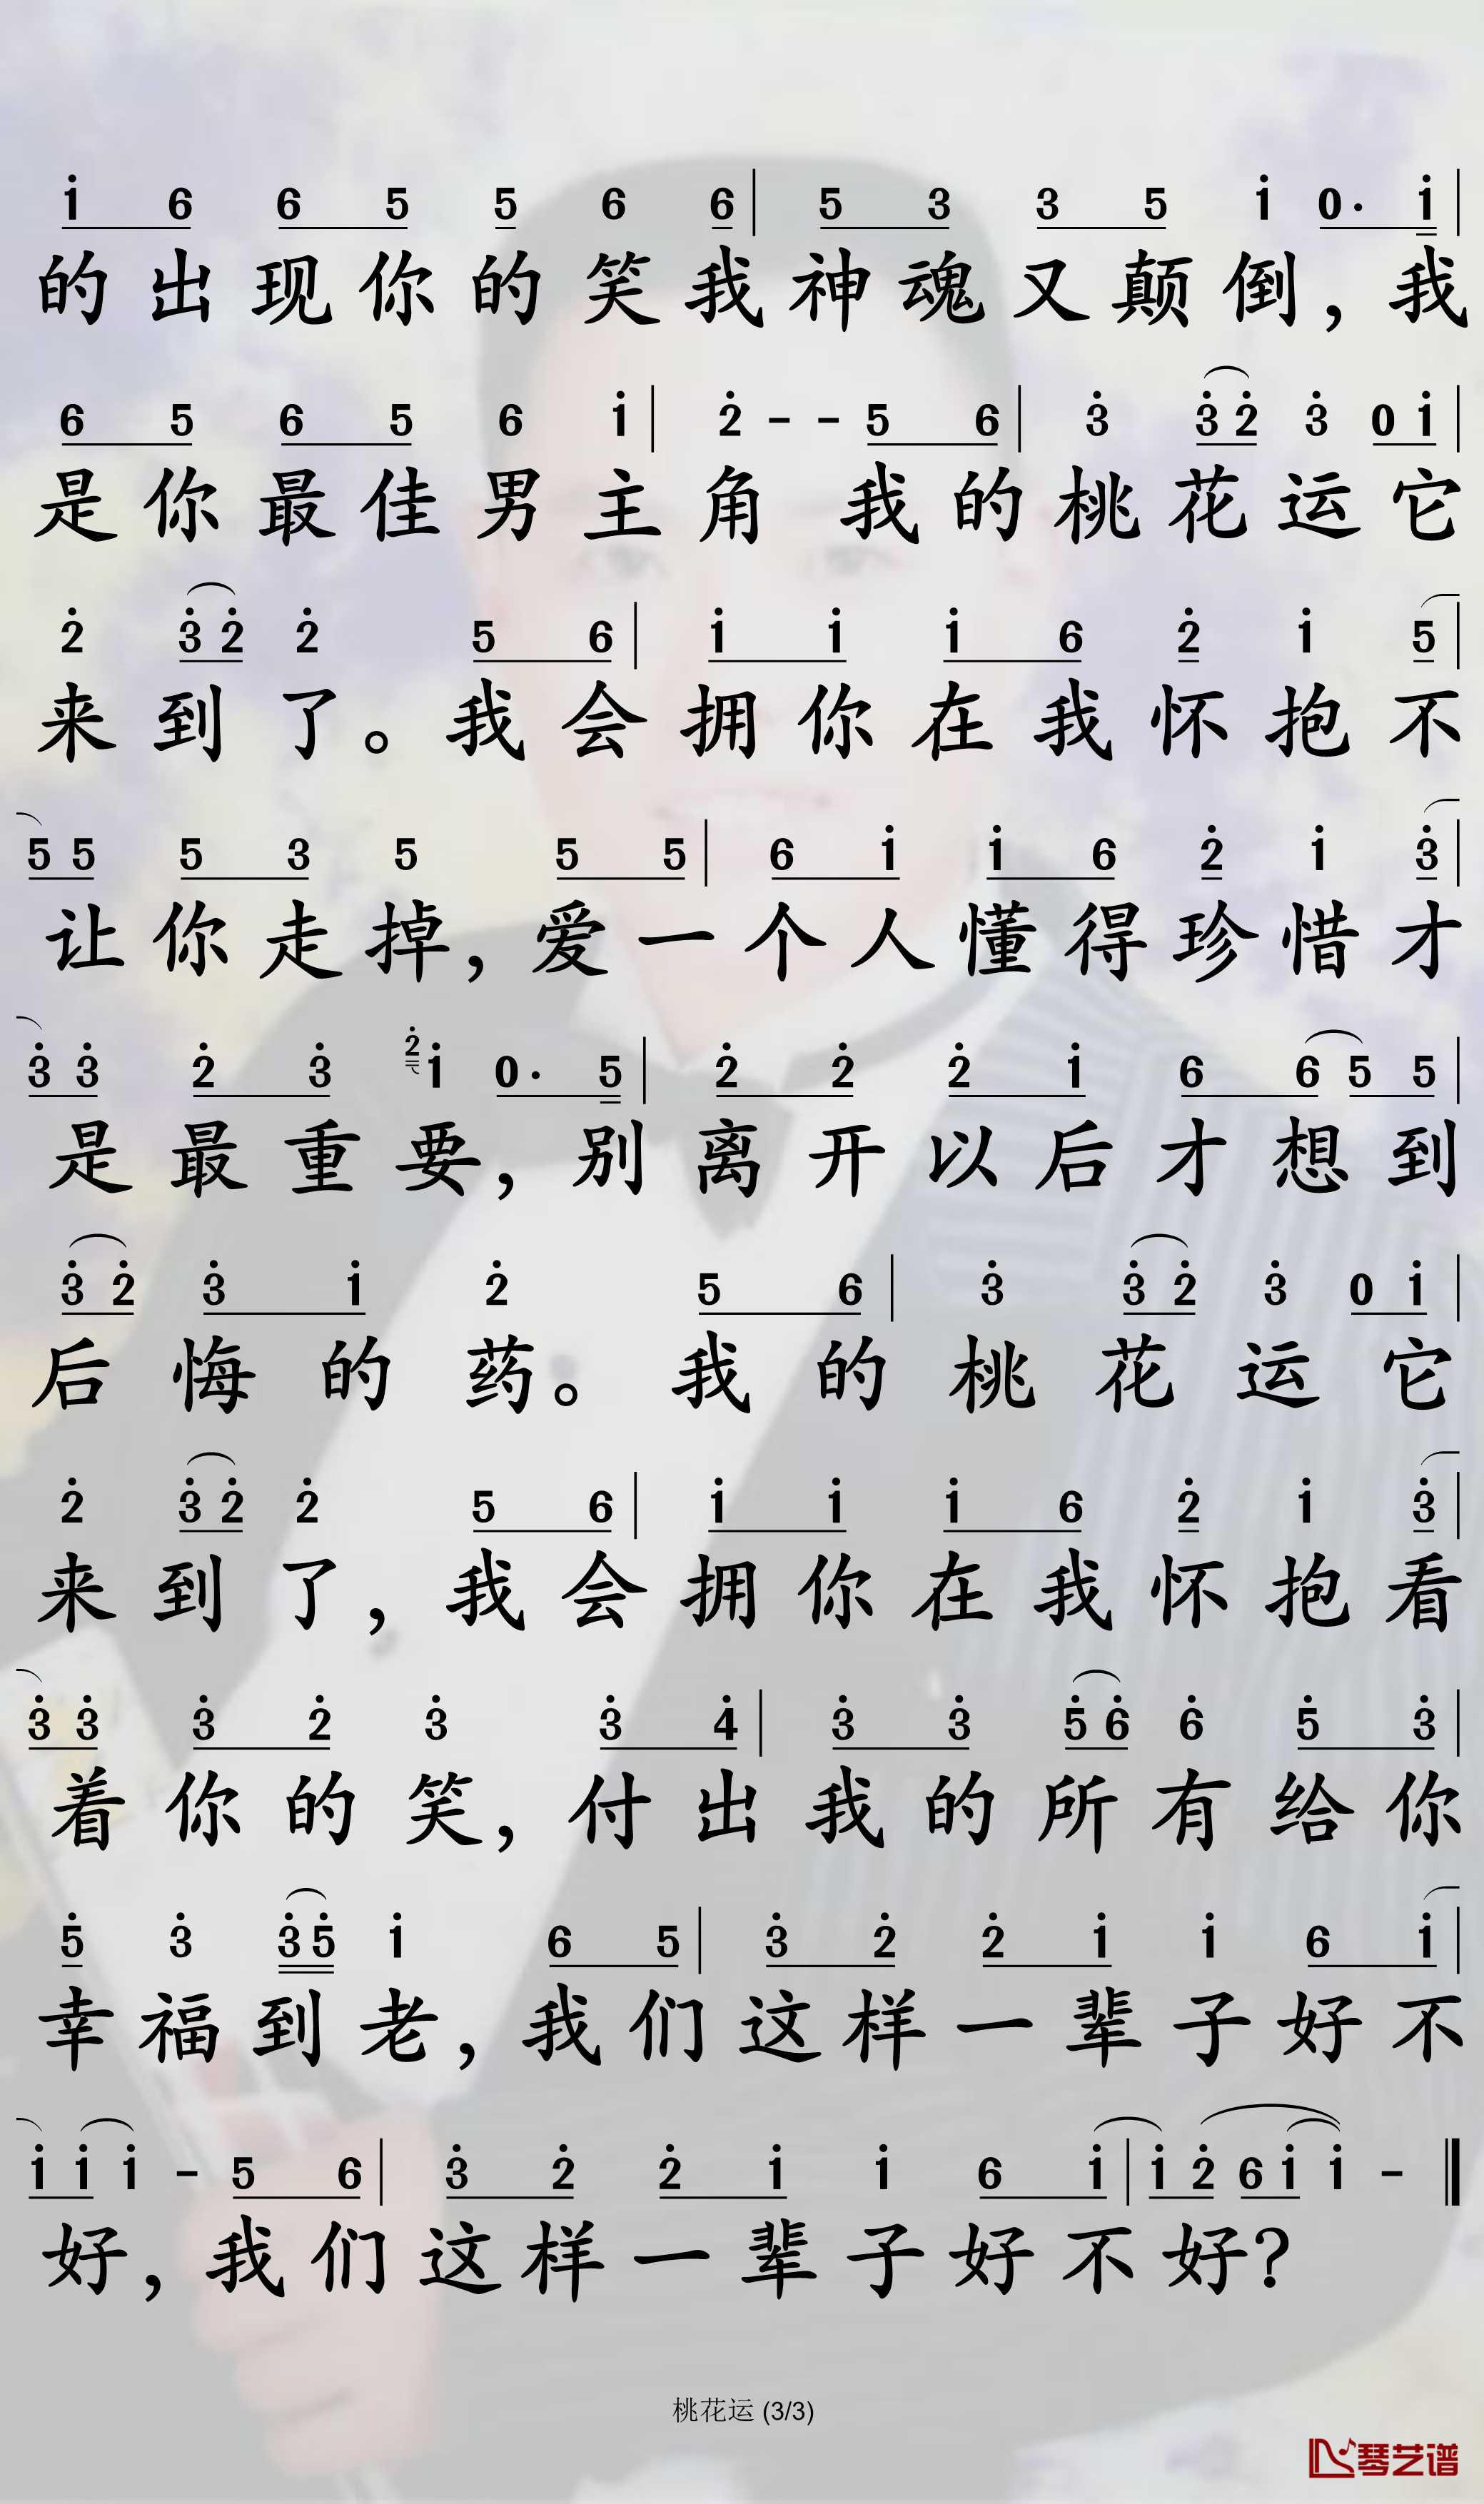 i 6 6 5 5 6 6 | 5 3 3 5 i 0· i |
的出现你的笑我神魂又颠倒，我
6 5 6 5 6 i | 2 - - 5 6 | 3 3 2 3 0 i |
是你最佳男主角 我的桃花运它
2 3 2 2 5 6 | i i i 6 2 i 5 |
来到了。我会拥你在我怀抱不
5 5 5 3 5 5 5 | 6 i i 6 2 i 3 |
让你走掉，爱一个人懂得珍惜才
3 3 2 3 2 i 0· 5 | 2 2 2 i 6 6 5 5 |
是最重要，别离开以后才想到
3 2 3 i 2 5 6 | 3 3 2 3 0 i |
后悔的药。我的桃花运它
2 3 2 2 5 6 | i i i 6 2 i 3 |
来到了，我会拥你在我怀抱看
3 3 3 2 3 3 4 | 3 3 5 6 6 5 3 |
着你的笑，付出我的所有给你
5 3 3 5 i 6 5 | 3 2 2 i i 6 i |
幸福到老，我们这样一辈子好不
i i i - 5 6 | 3 2 2 i i 6 i | i 2 6 i i - ‖
好，我们这样一辈子好不好？
桃花运 (3/3)
琴艺谱